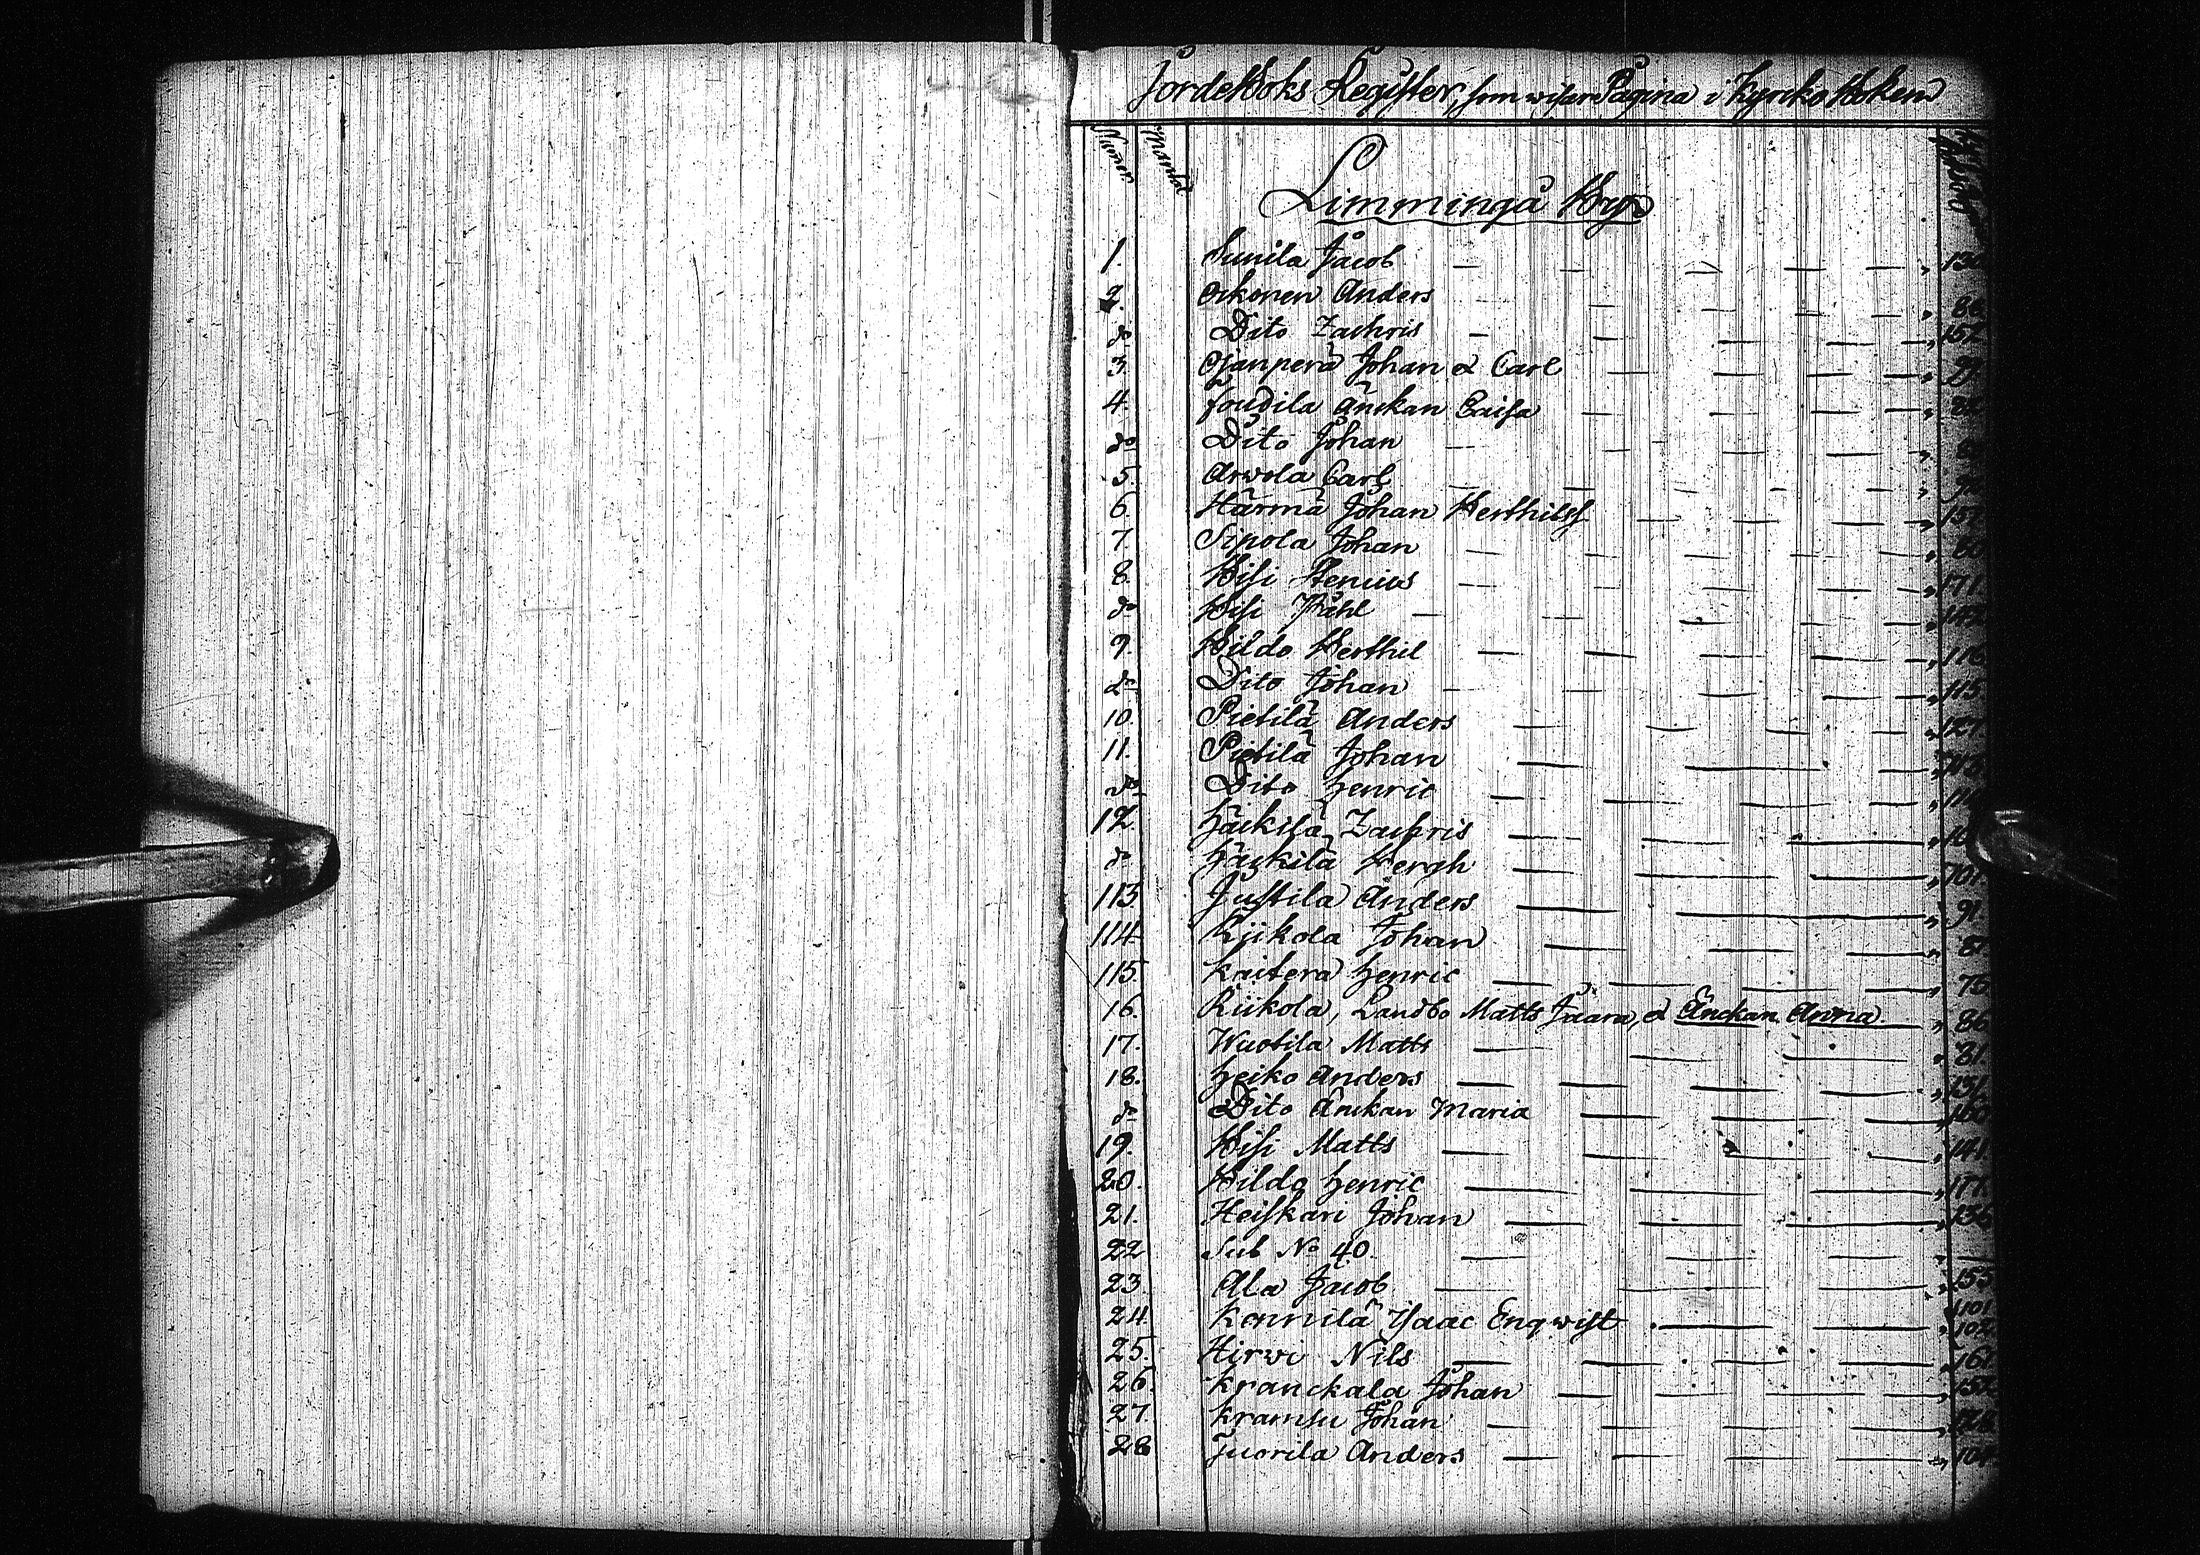 JordeBoks Register, som wisar Pagina i KyrckoBoken
Numer. Mantal
Limminga By
1. Sunila Jacob
2. Oikonen Anders 88
do Dito Zachris 157.
3. Ojanperä Johan & Carl
4. Foudila Änckan Caisa
do Dito Johan
5. Arwola Carl
6. Härmä Johan Berthilss
7. Sipola Johan
8. Bisi Stenius 171.
do Bisi Ståhl
9. Bildo Berthil 116
do Dito Johan 115
10. Pietilä Anders 127.
11. Pietilä Johan
do Dito Henric
12. Häikilä Zachris
do Häikilä Bergh 101.
113. Justila Anders 91
114. Kijkola Johan
115. Kaitera Henric 75
16. Riikola, Landbo Matts Jaara, & Änckan Anna. 86
17. Wuotila Matts 81.
18. Heiko Anders 151.
do Dito Änckan Maria
19. Bisi Matts 141.
20. Bildo Henric 177.
21. Heiskari Johan 136
22 Sub No 40.
23. Ala Jacob 155
24. Konnilä Isaac Enqwist 101. 102.
25. Hirwi Nils 161.
26. Kranckala Johan 152.
27. Kramsu Johan
28 Juorila Anders